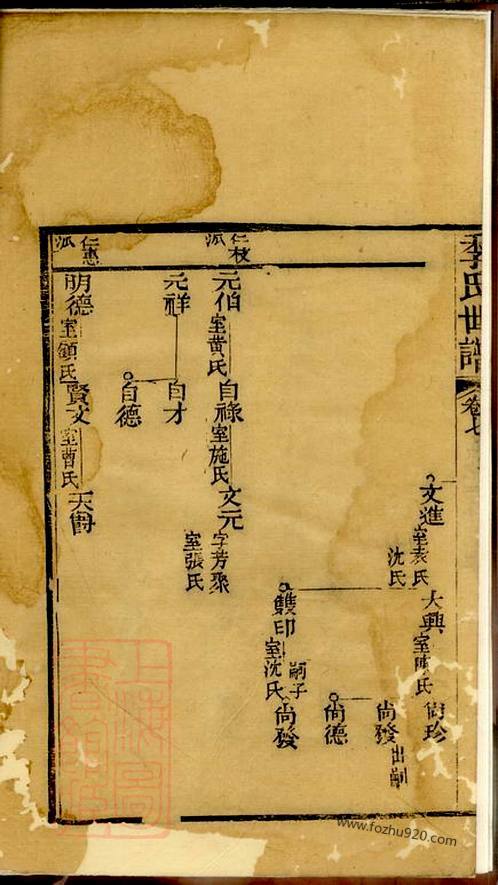 李氏世譜
卷七
文進 室袁氏 沈氏
大興 室陳氏
尚珍
尚發 出嗣
尚德
雙印 室沈氏
嗣子 尚發
仁枝派
元伯 室黃氏
自祿 室施氏
文元 字芳聚 室張氏
元祥
自才
自德
仁惠派
明德 室顧氏
賢文 室曹氏
天爵
上海圖書館藏
www.fozhu920.com